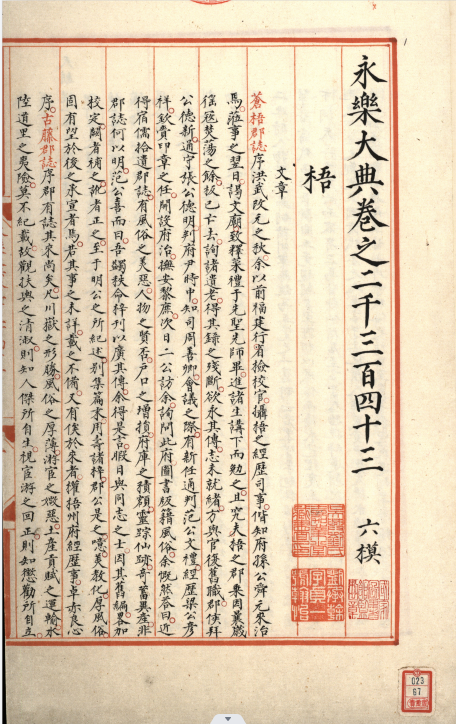 永樂大典卷之二千三百四十三 六模
梧
文章
蒼梧郡誌序洪武改元之秋余以前福建行省檢校官攝梧之經歷司事偕知府孫公舜元來治
馬蒞事之翌日謁文廟致釋菜禮于先聖先師畢進諸生講下而勉之且究夫梧之郡乗因曩歲
徭冦焚蕩之餘故已亡去詢諸遺老得其錄之殘斷欲求其傳
公德新通守張公德明判府尹時中知司周善卿會議之際有新任通判范公文禮經歷梁公彥
祥欽賫印章之任開設府治撫安黎庶次日二公訪余詢問此府圖書版籍風俗余慨然答曰近
得宿儒拾遺郡誌有風俗之美惡人物之賢否戶口之增損府庫之積
郡誌何以明范公喜而曰吾蠲秩命梓刊以廣其傳余得是言暇日與同志之士因其舊編畧加
校定闕者補之訛者正之至于明公之所紀述別集篇末用壽諸梓郡公是之噫美教化厚風俗
固有望於後之承宣者焉若其事之未詳載之不備又有俟於來者權梧州府經歷事卓亦良心
序古藤郡誌序郡有誌其來尚矣凡川嶽之形勝風俗之厚薄游宦之媺惡土産貢賦之運輸水
陸道里之夷險莫不紀載故觀扶輿之清淑則知人傑所自生視宦游之回正則知懲勸所自立
023
67